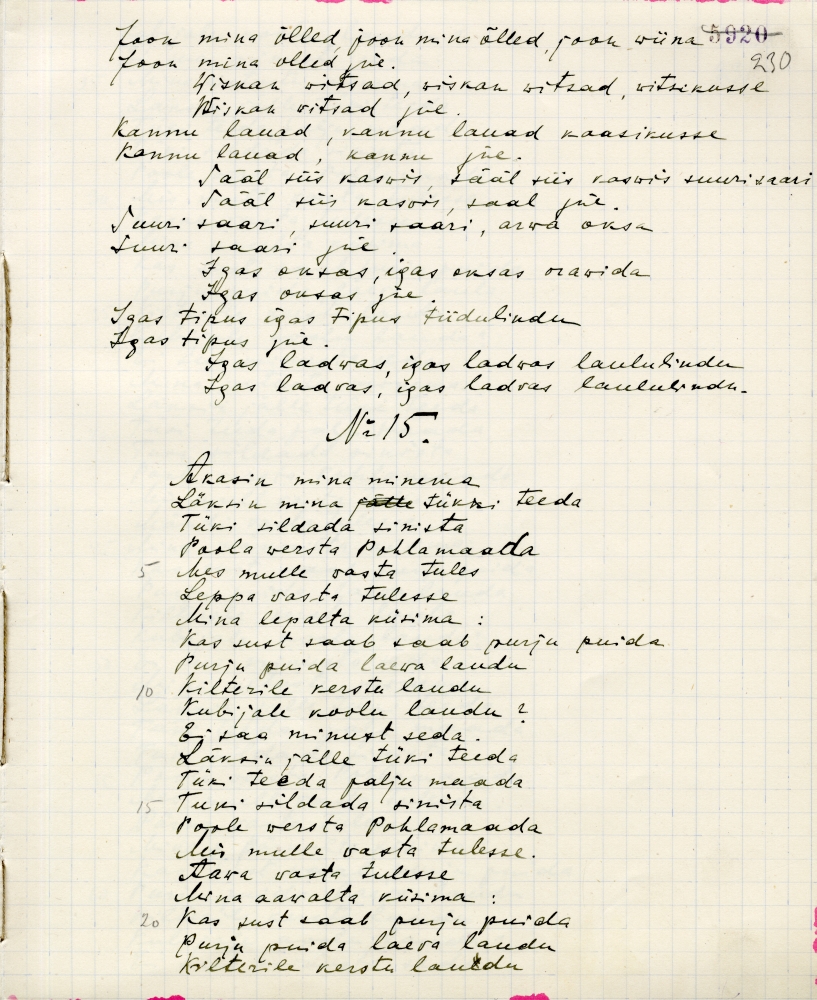 Joon mina õlled, joon mina õlled, joon wiina 5920
Joon mina olled jne. 230
Wiskan witsad, wiskan witsad, witsikusse
Wiskan witsad jne.
Kannu lauad, kannu lauad kaasikusse
Kannu lauad, kannu jne.
Sääl siis kaswis, sääl siis kaswis suuri saari
Sääl siis kaswis, saal jne.
Suuri saari, suuri saari, arwa oksa
Suuri saari jne.
Igas oksas, igas oksas orawida
Igas oksas jne.
Igas tipus igas tipus tiidulindu
Igas tipus jne.
Igas ladwas, igas ladwas laululindu
Igas ladvas, igas ladvas laululindu.
№ 15.
Akasin mina minema
Läksin mina jälle tükki teeda
Tüki sildada sinista
Poola wersta Pohlamaada
5 Mes mulle vasta tules
Leppa vasta tulesse
Mina lepalta küsima :
Kas sust saab saab purju puida
Purju puida laewa laudu
10 Kilterile kerstu laudu
Kubijale koolu laudu ?
Ei saa minust seda.
Läksin jälle tüki teeda
Tüki teeda palju maada
15 Tuki sildada sinista
Poole wersta Pohlamaada
Mis mulle vasta tulesse.
Aawa vasta tulesse
Mina aawalta küsima :
20 Kas sust saab purju puida
Purju puida laeva laudu
Kilterile kerstu laudu